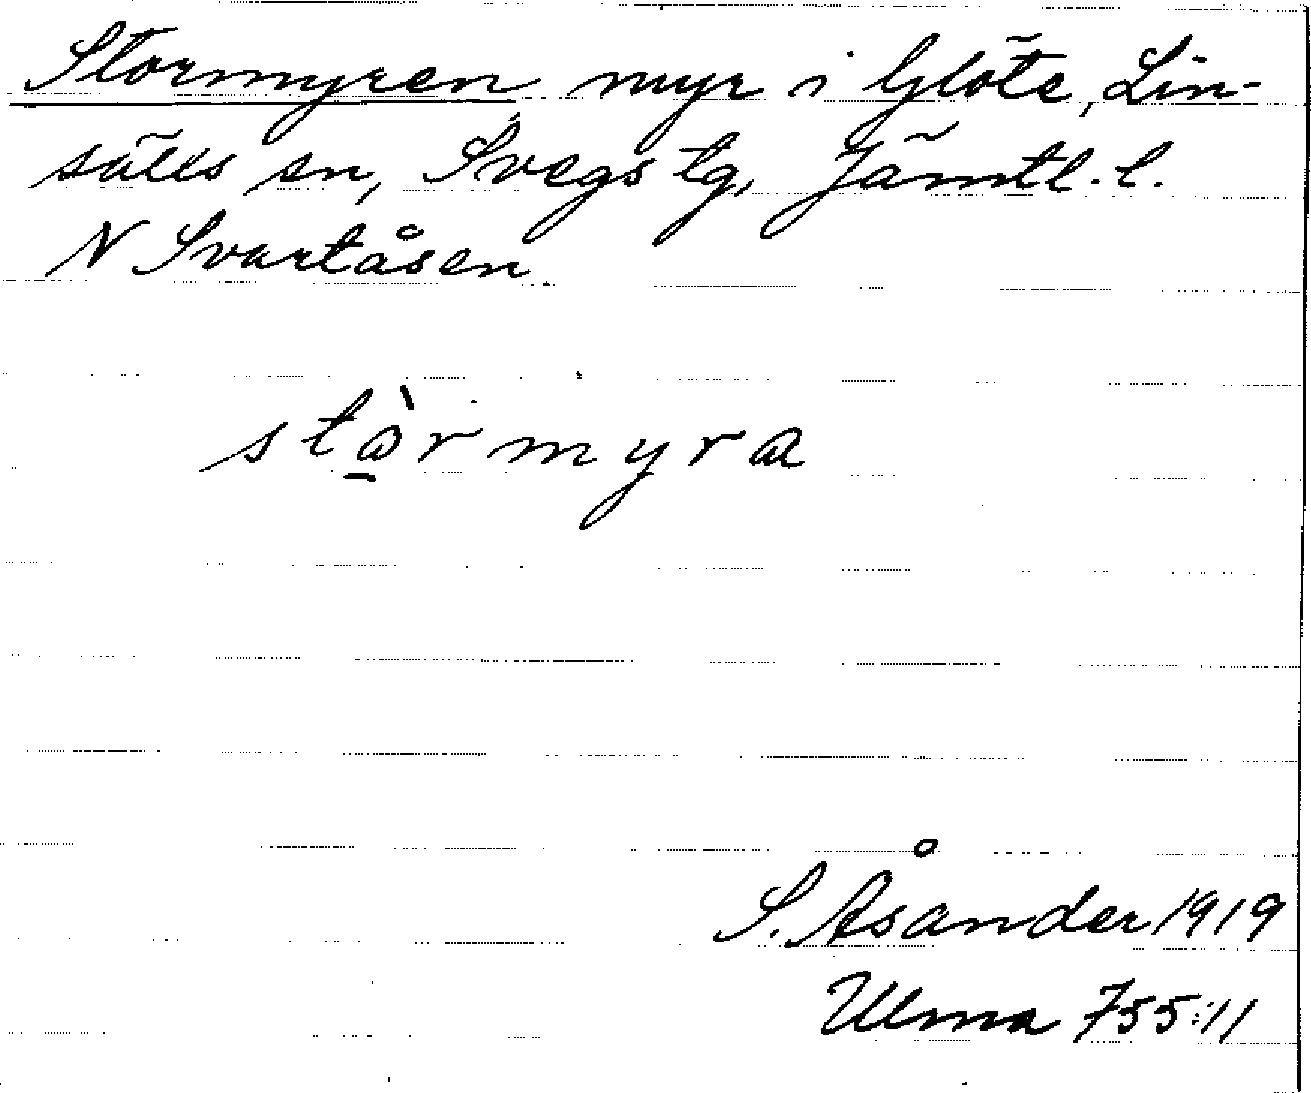 Stormyren, myr i Glöte, Lin-
sälls sn, Svegs tg, Jämtl. l.
N Svartåsen
stò̱rmyra
S. Åsander 1919
Ulma 755:11